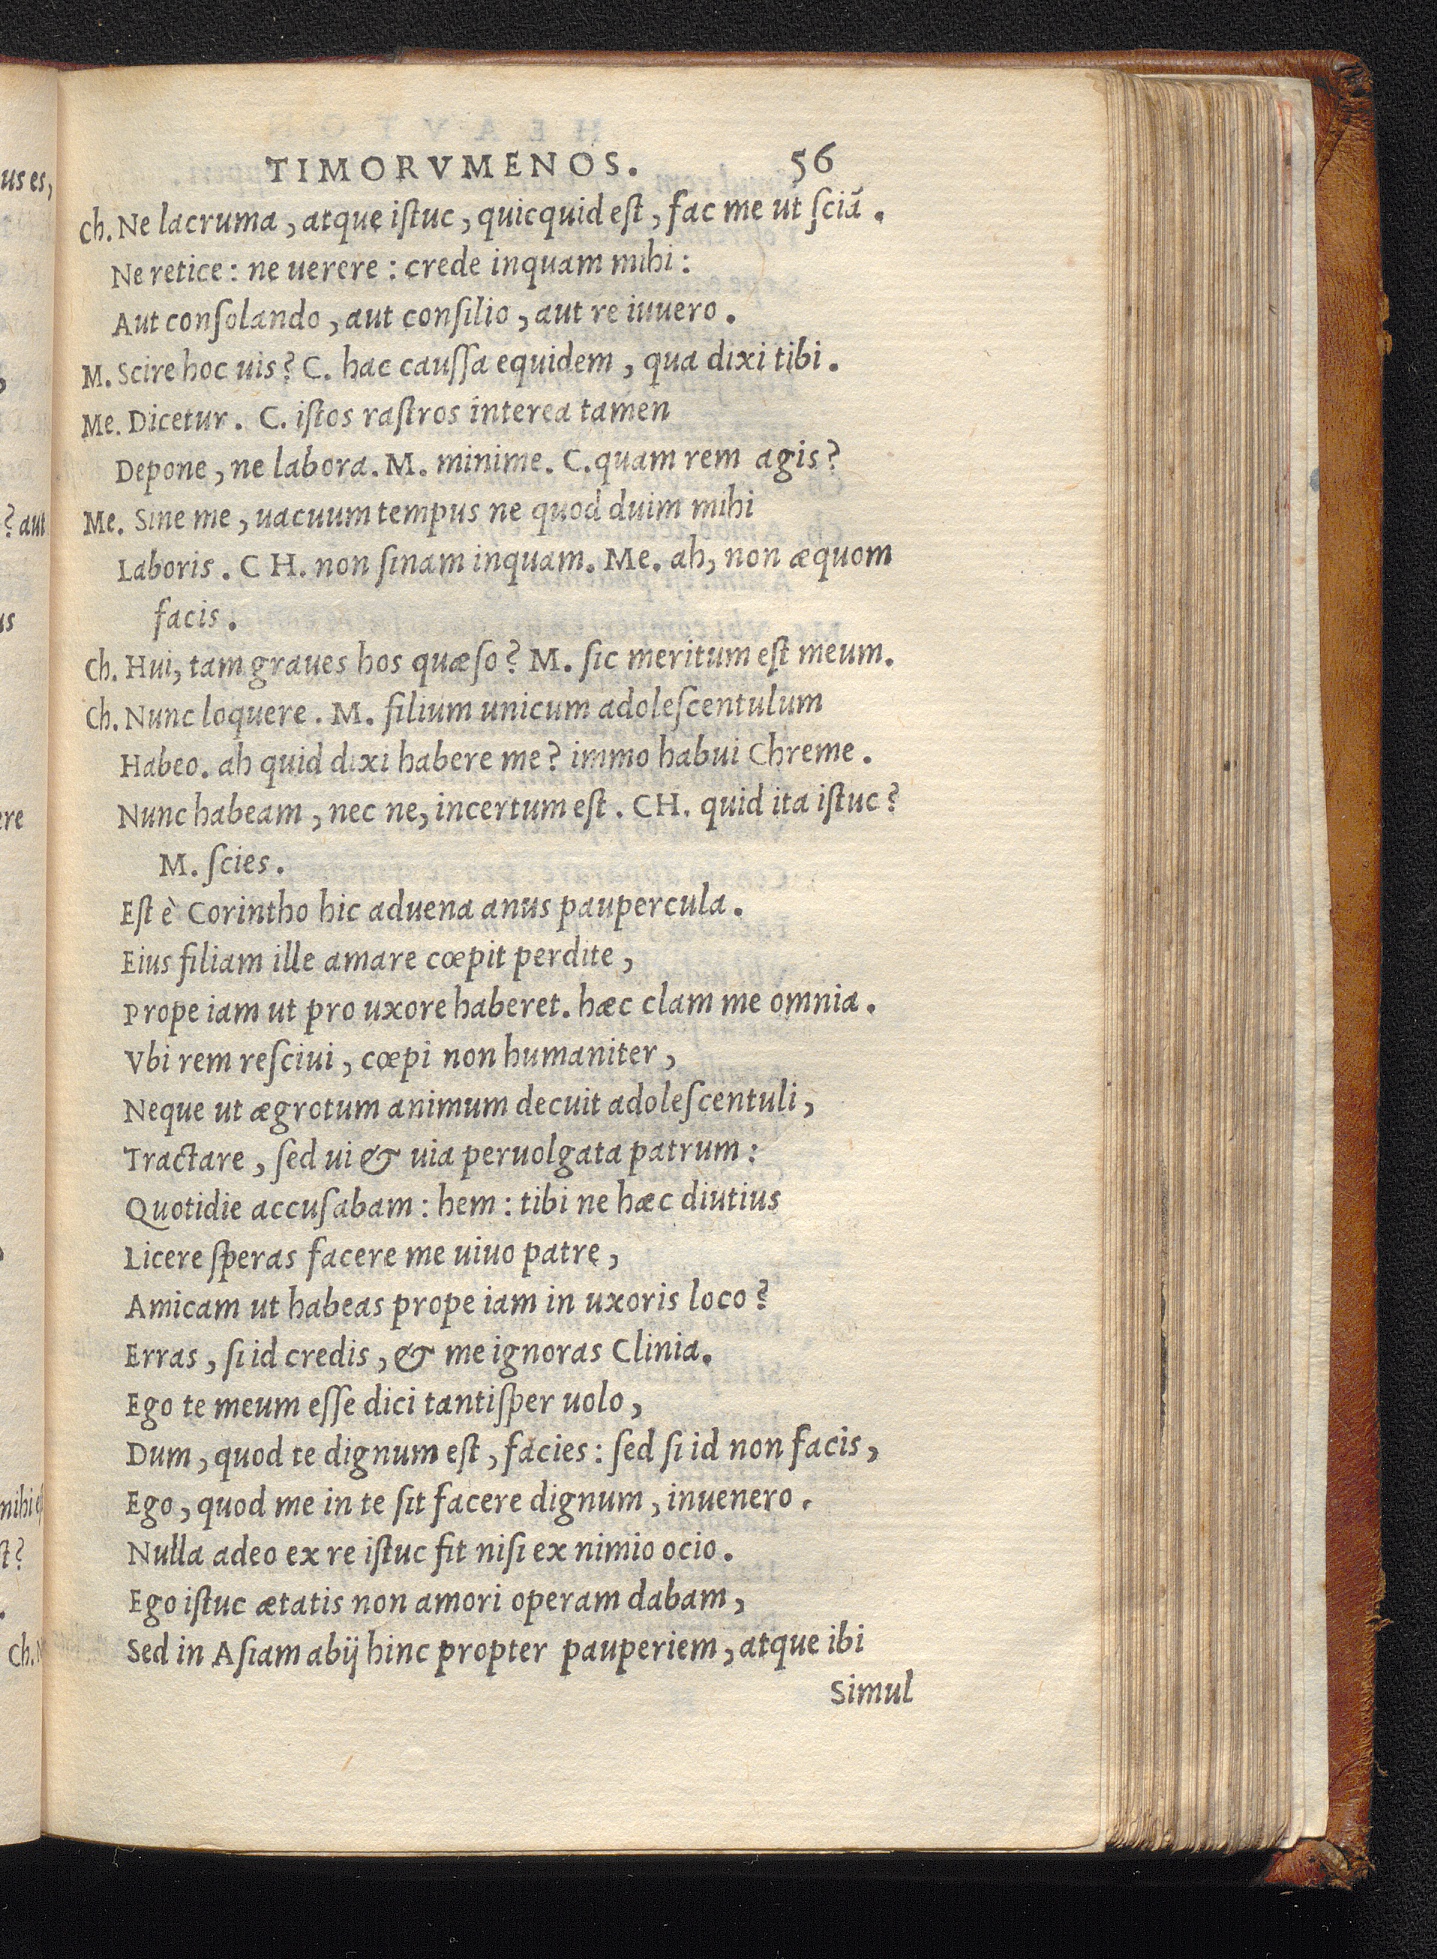 TIMORVMENOS. 56
Ch. Ne lacruma, atque iſtuc, quicquid eſt, fac me ut ſciā.
Ne retice: ne uerere: crede inquam mihi:
Aut conſolando, aut conſilio, aut re iuuero.
M. Scire hoc uis? C. hac cauſſa equidem, qua dixi tibi.
Me. Dicetur. C. iſtos raſtros interea tamen
Depone, ne labora. M. minime. C. quam rem agis?
Me. Sine me, uacuum tempus ne quod duim mihi
Laboris. CH. non ſinam inquam. Me. ah, non æquom
facis.
Ch. Hui, tam graues hos quæſo? M. ſic meritum eſt meum.
Ch. Nunc loquere. M. filium unicum adoleſcentulum
Habeo. ah quid dixi habere me? immo habui Chreme.
Nunc habeam, nec ne, incertum eſt. CH. quid ita iſtuc?
M. ſcies.
Eſt è Corintho hic aduena anus paupercula.
Eius filiam ille amare cœpit perdite,
Prope iam ut pro uxore haberet. hæc clam me omnia.
Vbi rem reſciui, cœpi non humaniter,
Neque ut ægrotum animum decuit adoleſcentuli,
Tractare, ſed ui & uia peruolgata patrum:
Quotidie accuſabam: hem: tibi ne hæc diutius
Licere ſperas facere me uiuo patre,
Amicam ut habeas prope iam in uxoris loco?
Erras, ſi id credis, & me ignoras Clinia.
Ego te meum eſſe dici tantiſper uolo,
Dum, quod te dignum eſt, facies: ſed ſi id non facis,
Ego, quod me in te ſit facere dignum, inuenero.
Nulla adeo ex re iſtuc fit niſi ex nimio ocio.
Ego iſtuc ætatis non amori operam dabam,
Sed in Aſiam abij hinc propter pauperiem, atque ibi
Simul